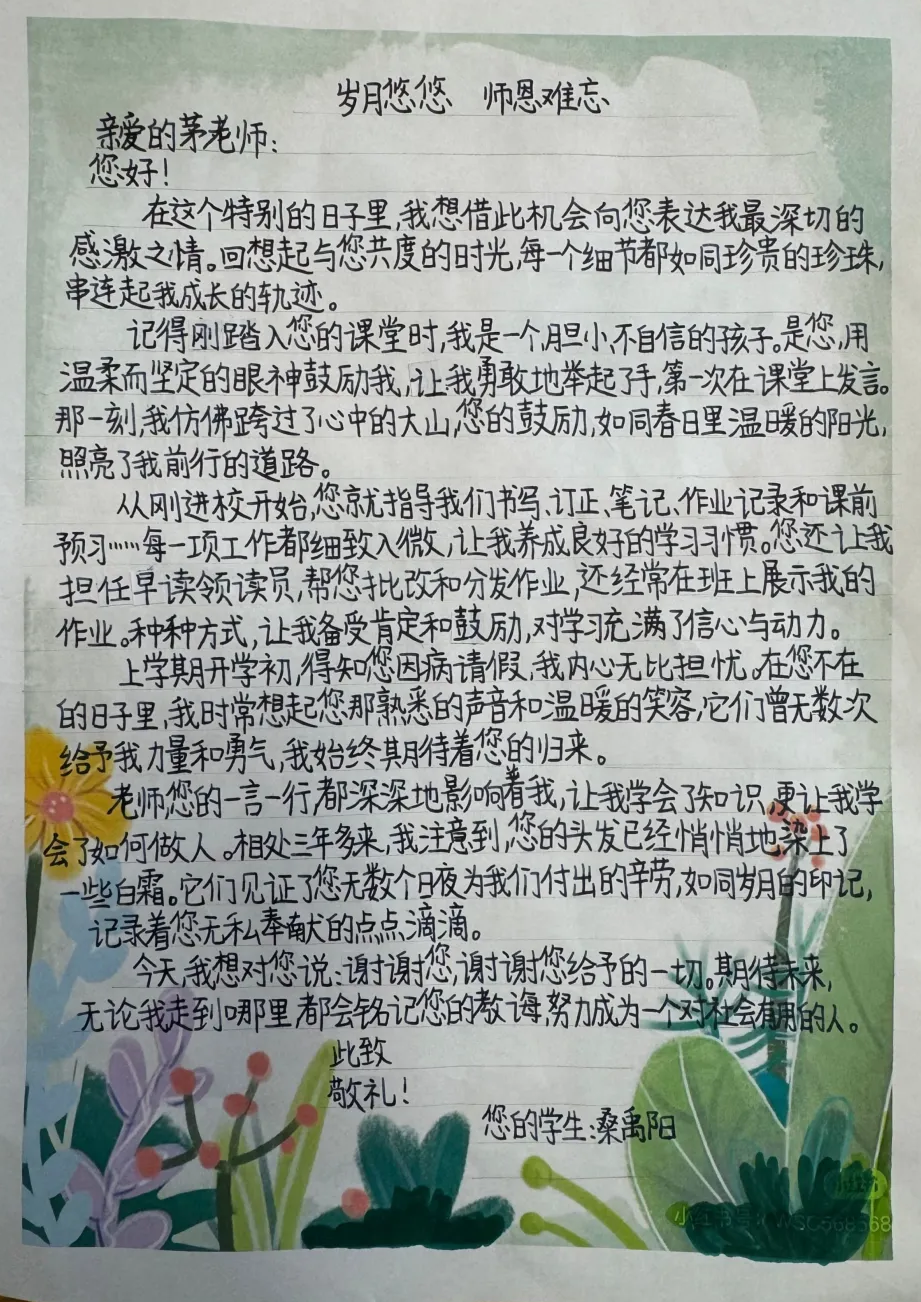 岁月悠悠 师恩难忘
亲爱的茅老师：
您好！
在这个特别的日子里，我想借此机会向您表达我最深切的
感激之情。回想起与您共度的时光，每一个细节都如同珍贵的珍珠，
串连起我成长的轨迹。
记得刚踏入您的课堂时，我是一个胆小、不自信的孩子。是您，用
温柔而坚定的眼神鼓励我，让我勇敢地举起了手，第一次在课堂上发言。
那一刻，我仿佛跨过了心中的大山，您的鼓励，如同春日里温暖的阳光，
照亮了我前行的道路。
从刚进校开始，您就指导我们书写、订正、笔记、作业记录和课前
预习……每一项工作都细致入微，让我养成良好的学习习惯。您还让我
担任早读领读员，帮您批改和分发作业，还经常在班上展示我的
作业。种种方式，让我备受肯定和鼓励，对学习充满了信心与动力。
上学期开学初，得知您因病请假，我内心无比担忧。在您不在
的日子里，我时常想起您那熟悉的声音和温暖的笑容，它们曾无数次
给予我力量和勇气，我始终期待着您的归来。
老师，您的一言一行都深深地影响着我，让我学会了知识，更让我学
会了如何做人。相处三年多来，我注意到，您的头发已经悄悄地染上了
一些白霜。它们见证了您无数个日夜为我们付出的辛劳，如同岁月的印记，
记录着您无私奉献的点点滴滴。
今天，我想对您说：谢谢您，谢谢您给予的一切。期待未来，
无论我走到哪里都会铭记您的教诲，努力成为一个对社会有用的人。
此致
敬礼！
您的学生：桑禹阳
小红书号：WSC568568